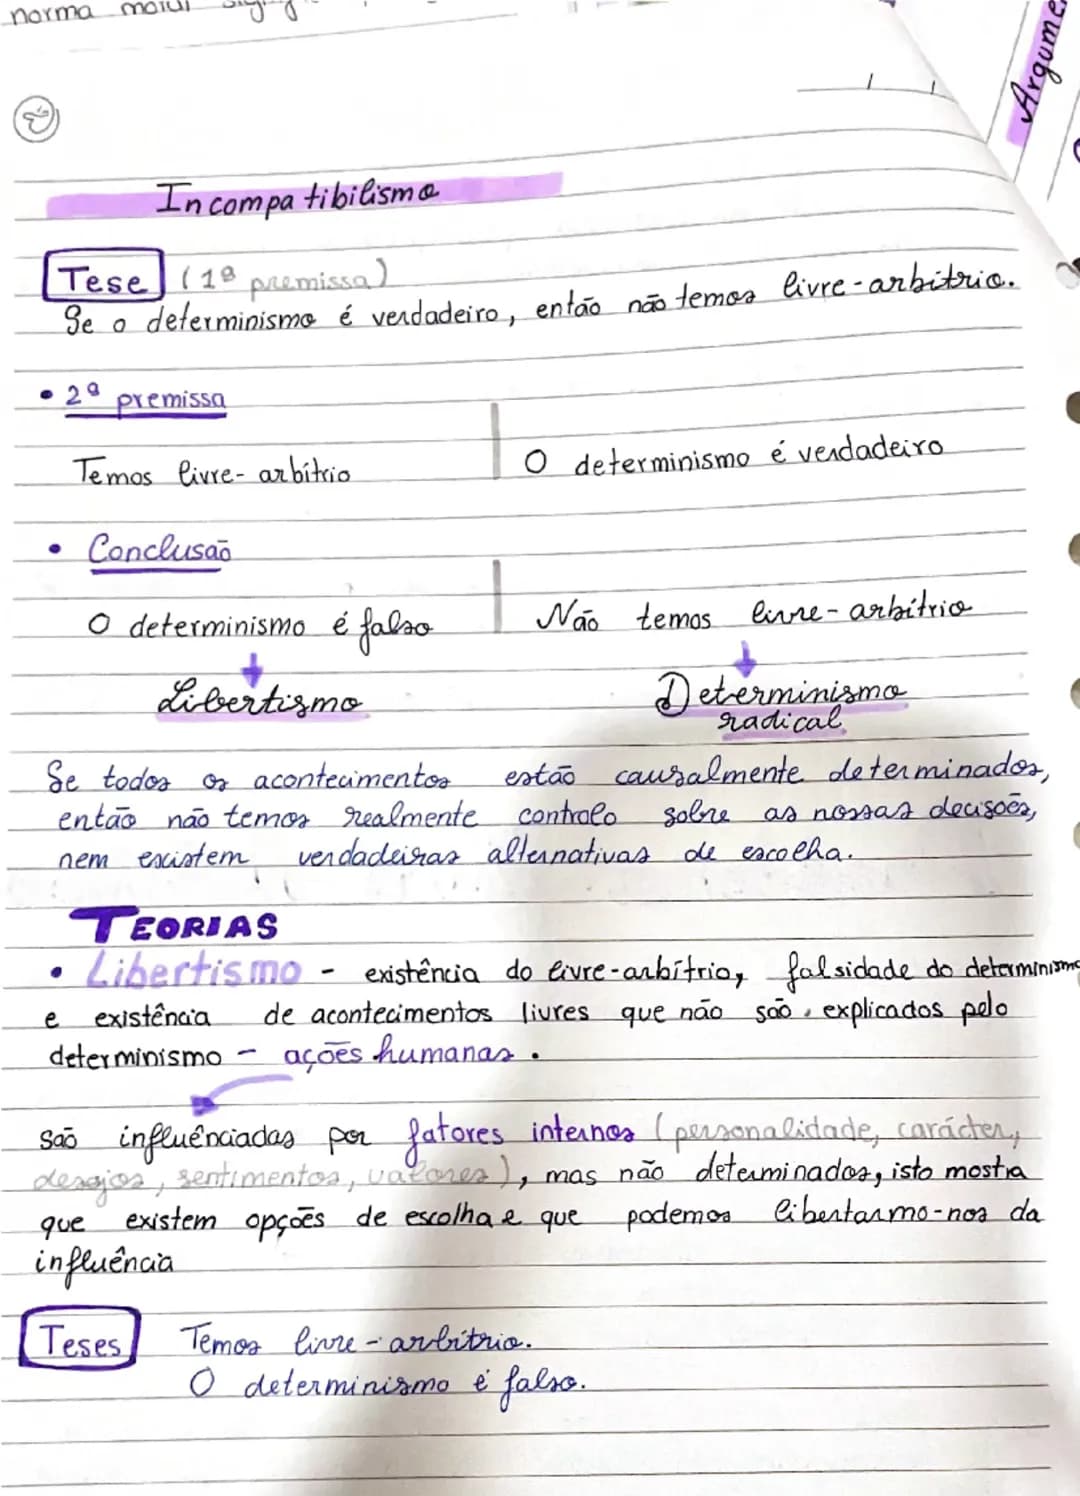 norma moral
Argume
Incompatibilismo
Tese (1ª premissa)
Se o determinismo é verdadeiro, então não temos livre-arbítrio.
• 2ª premissa
Temos livre-arbítrio | O determinismo é verdadeiro
• Conclusão
O determinismo é falso | Não temos livre-arbítrio
Libertismo Determinismo
radical
Se todos os acontecimentos estão causalmente determinados,
então não temos realmente controlo sobre as nossas decisões,
nem existem verdadeiras alternativas de escolha.
TEORIAS
• Libertismo - existência do livre-arbítrio, falsidade do determinismo
e existência de acontecimentos livres que não são explicados pelo
determinismo - ações humanas.
são influênciadas por fatores internos (personalidade, carácter,
desejos, sentimentos, valores), mas não determinados, isto mostra
que existem opções de escolha e que podemos libertarmo-nos da
influência
Teses Temos livre-arbítrio.
O determinismo é falso.